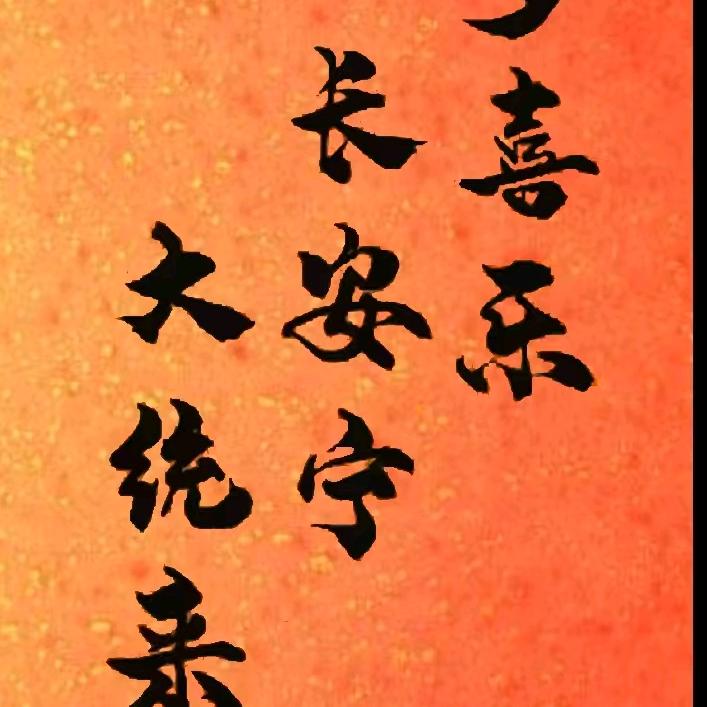 喜乐
长安宁
大统来